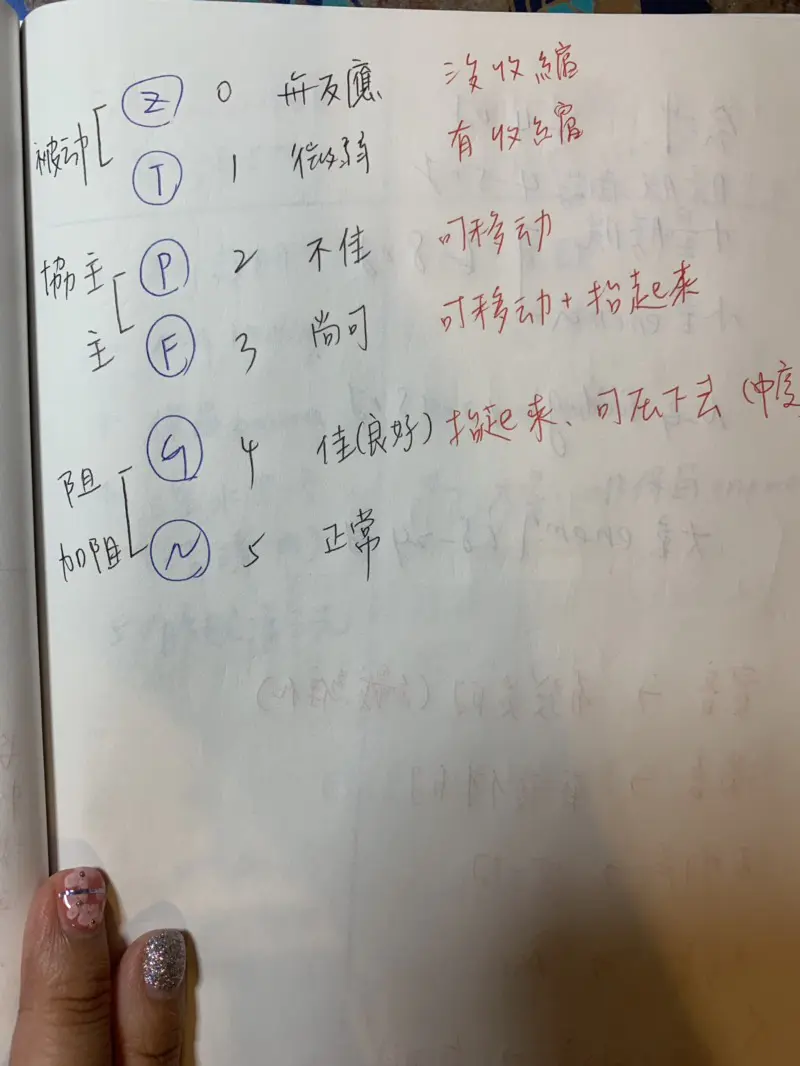 Z 0 無反應 沒收縮
被动 T 1 微弱 有收縮
協主 P 2 不佳 可移动
主 F 3 尚可 可移动+抬起来
阻 G 4 佳(良好) 抬起来、可压下去(中度
加阻 N 5 正常